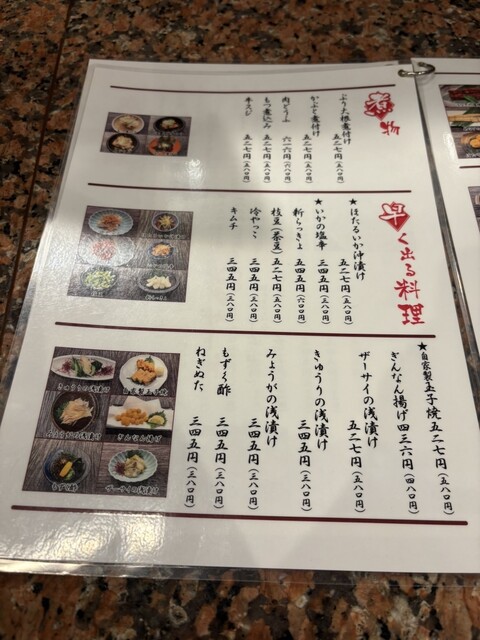 物
ぶり大根煮付け 五二七円(五八〇円)
かぶと煮付け 五二七円(五八〇円)
肉どうふ 六一六円(六八〇円)
もつ煮込み 五二七円(五八〇円)
牛スジ 五二七円(五八〇円)
早く出る料理
ほたるいか沖漬け 五二七円(五八〇円)
★いかの塩辛 三四五円(三八〇円)
新らっきょ 五四五円(六〇〇円)
枝豆(茶豆) 五二七円(五八〇円)
冷やっこ 三四五円(三八〇円)
キムチ 三四五円(三八〇円)
★自家製玉子焼 五二七円(五八〇円)
ぎんなん揚げ 四三六円(四八〇円)
ザーサイの浅漬け 五二七円(五八〇円)
きゅうりの浅漬け 三四五円(三八〇円)
みょうがの浅漬け 三四五円(三八〇円)
もずく酢 三四五円(三八〇円)
ねぎぬた 三四五円(三八〇円)
きゅうりの浅漬け
自家製玉子焼
みょうがの浅漬け
ぎんなん揚げ
もずく酢
ザーサイの浅漬け